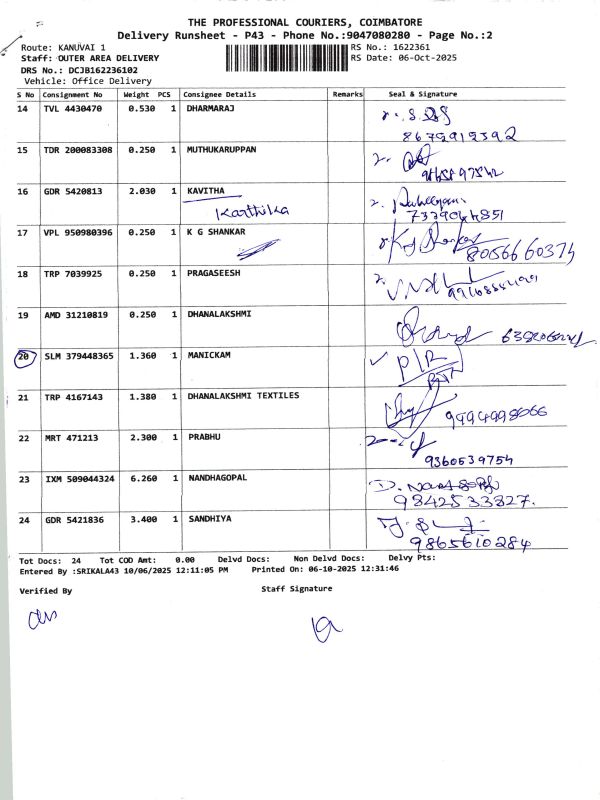 THE PROFESSIONAL COURIERS, COIMBATORE
Delivery Runsheet - P43 - Phone No.:9047080280 - Page No.:2
Route: KANUVAI 1 RS No.: 1622361
Staff: OUTER AREA DELIVERY RS Date: 06-Oct-2025
DRS No.: DCJB162236102
Vehicle: Office Delivery
S No Consignment No Weight PCS Consignee Details Remarks Seal & Signature
14 TVL 4430470 0.530 1 DHARMARAJ
15 TDR 200083308 0.250 1 MUTHUKARUPPAN
16 GDR 5420813 2.030 1 KAVITHA
Karthika 7339044851
17 VPL 950980396 0.250 1 K G SHANKAR
8056660374
18 TRP 7039925 0.250 1 PRAGASEESH
19 AMD 31210819 0.250 1 DHANALAKSHMI
20 SLM 379448365 1.360 1 MANICKAM P/R
21 TRP 4167143 1.380 1 DHANALAKSHMI TEXTILES
9994998066
22 MRT 471213 2.300 1 PRABHU
9360539754
23 IXM 509044324 6.260 1 NANDHAGOPAL
9842533827.
24 GDR 5421836 3.400 1 SANDHIYA
9865610284
Tot Docs: 24 Tot COD Amt: 0.00 Delvd Docs: Non Delvd Docs: Delvy Pts:
Entered By :SRIKALA43 10/06/2025 12:11:05 PM Printed On: 06-10-2025 12:31:46
Verified By Staff Signature